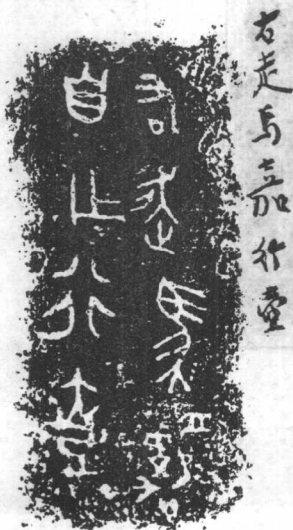 右走馬嘉行壺
右走馬嘉
自乍行壺